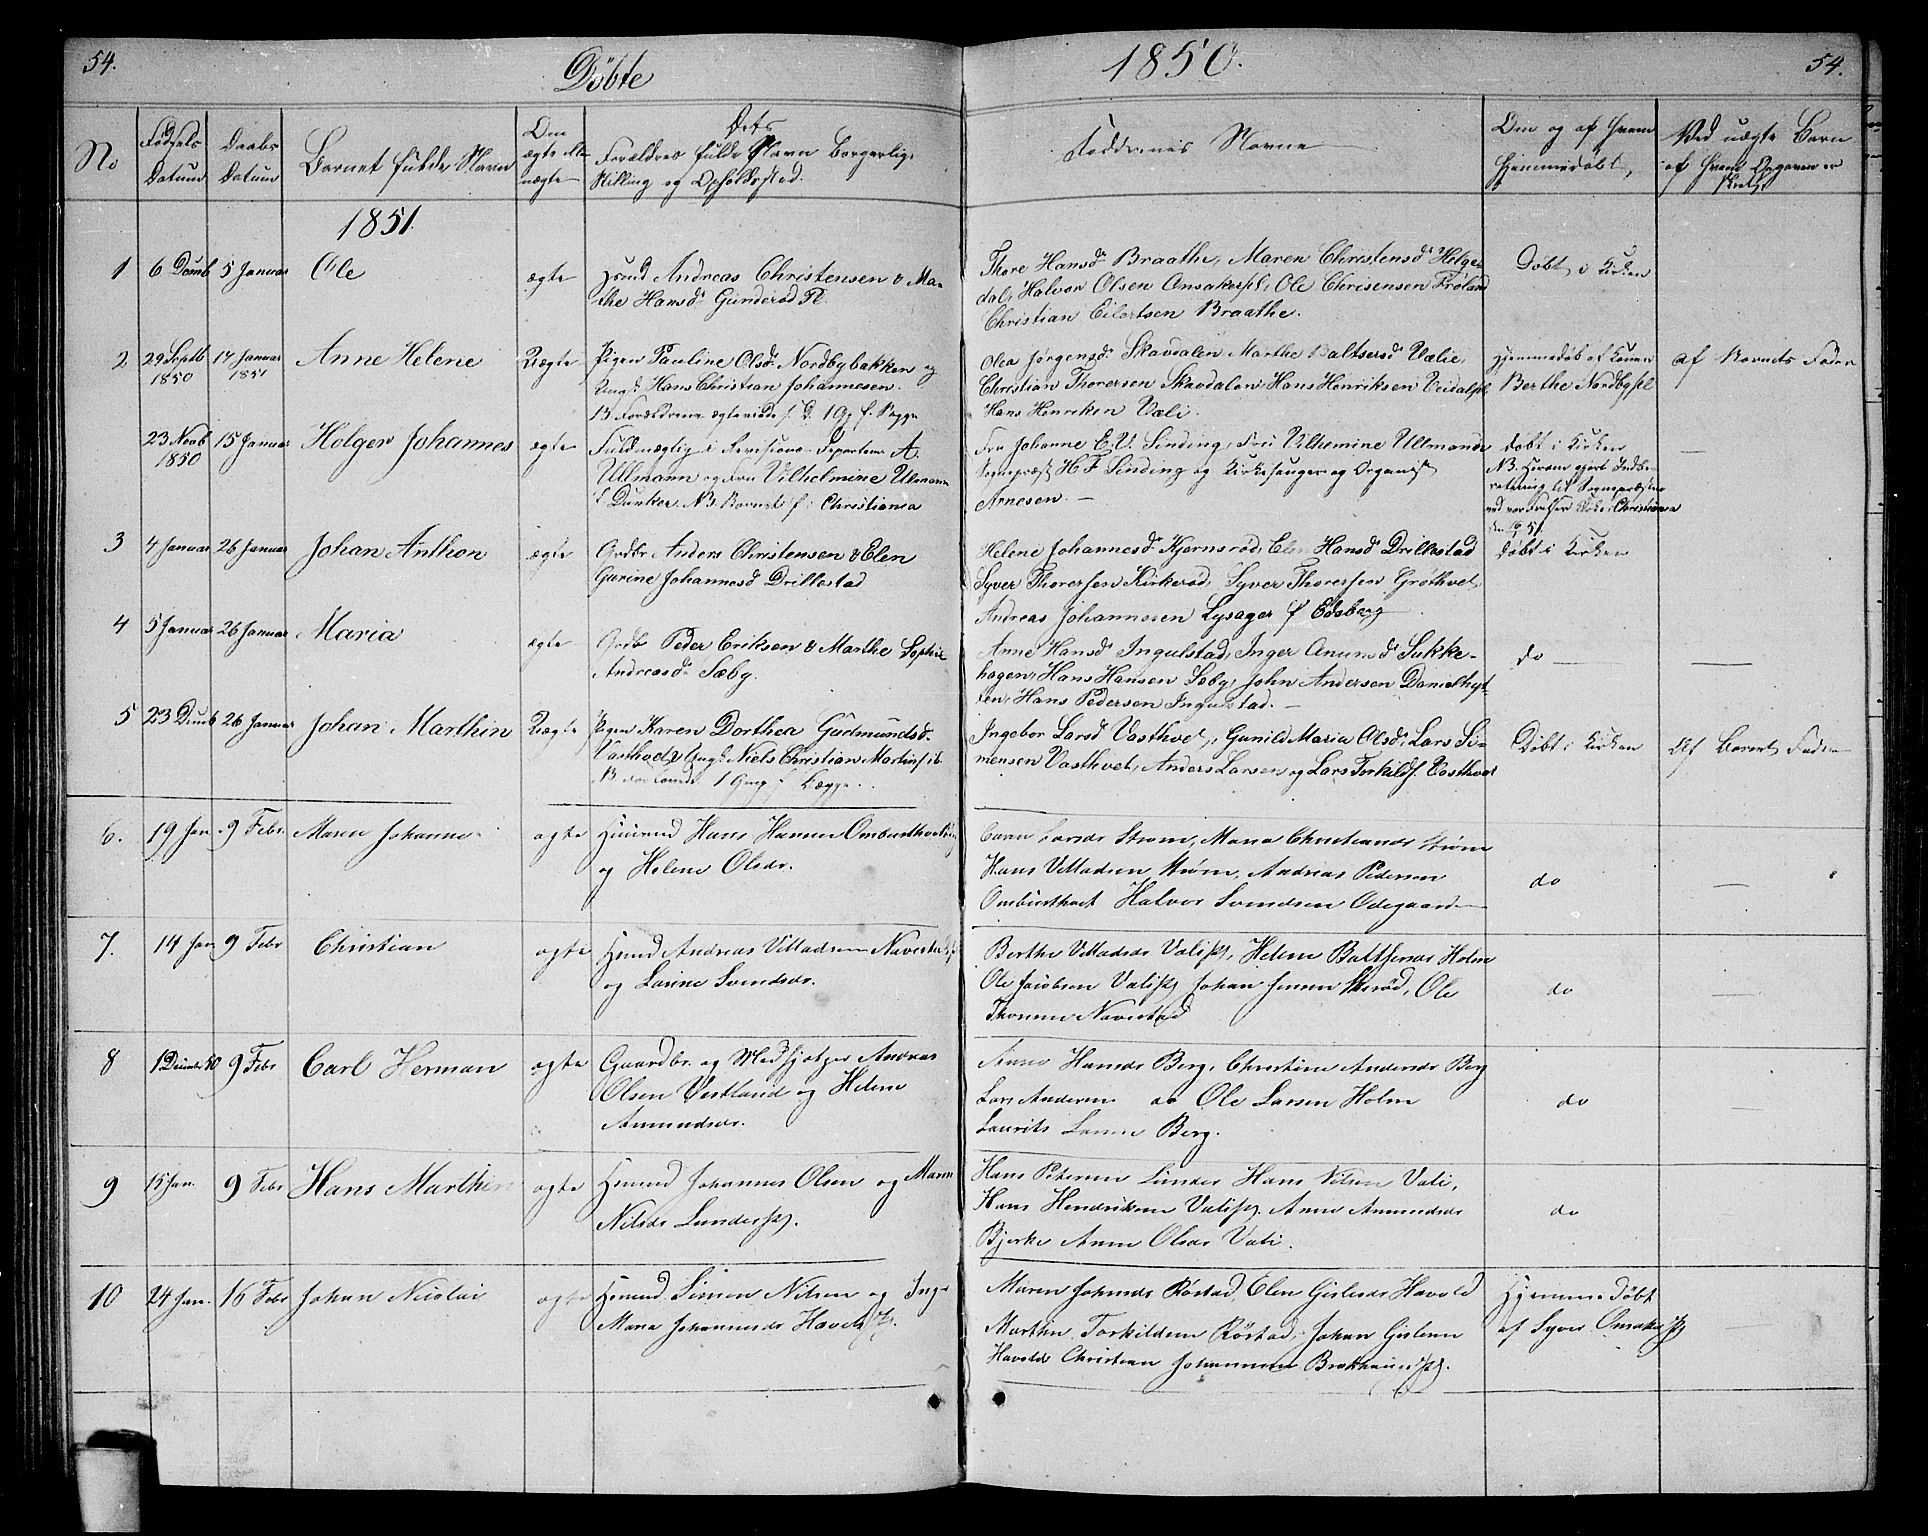 54.
Döbte
1850.
54.
No
Fødsels Datum
Daabs Datum
Barnets fulde Navn
Om ægte eller uægte
Dets Forældres fulde Navn Borgerlige Stilling og Opholdssted.
Faddernes Navne
Om og af hvem hjemmedøbt,
Ved uægte Barn af hvem Opgaven er skeet
1851.
1
6 Decmb
5 Januar
Ole
ægte
Huusmd Andreas Christensen & Ma-
the Hansd Gunderød Pl.
Thore Hansd Braathe, Maren Christensd Helge-
dal, Halvor Olsen Omsakerpl, Ole Chrisensen Frøland
Christian Eilertsen Braathe.
Døbt i Kirken
2
29 Septb 1850
17 Januar 1851
Anne Helene
Uægte
Pigen Pauline Olsd Nordbybakken og
Ungk. Hans Christian Johannesen.
Olea Jørgensd Skavdalen Marthe Baltsersd Vælie,
Christian Thorersen Skavdalen, Hans Henriksen Veidalspl
Hans Henriken Væli.
Hjemmedøb af Konen
Berthe Nordbypl
af Barnets Fader
23 Novb 1850
15 Januar
Holger Johannes
ægte
Fuldmægtig i Revisions Departem A.
Ullmann og Fru Vilhelmine Ulmann
f. Dunker. NB. Barnet f. i Christiania
Fru Johanne E. V. Sinding, Fru Vilhemine Ullmann
H F Sinding og Kirkesanger og Organist
Arnesen. —
Døbt i Kirken
NB. Herom gjort Indbe-
retning til Sognepræsten
ved vor Frelsers Kirke i Christiania
3
4 Januar
26 Januar
Johan Anthon
ægte
Grdbr Anders Christensen & Elen
Gurine Johannesd Drillestad
Helene Johannesd Kjernsrød, Elen Hansd Drillestad
Syver Thorersen Kirkerød, Syver Thorersen Grøthvet,
Andreas Johannesen Lysager f Edsberg
Døbt i Kirken
4
5 Januar
26 Januar
Maria
ægte
Grdbr Peder Eriksen & Marthe Sophie
Andreasd Sæby.
Anne Hansd Ingulstad, Inger Anumd Sukke-
hagen, Hans Hansen Sæby, John Andersen Damelhyt
ten, Hans Pedersen Ingulstad. —
do —
5
23 Decmb
26 Januar
Johan Marthin
Uægte
Pigen Karen Dorthea Gudmundsd.
Vasthvet & Ungk. Niels Christian Martins
Ingebor Larsd Vasthvet, Gunild Maria Olsd, Lars Si-
mensen Vasthvet, Anders Larsen og Lars Torkilds. Vasthvet
Døbt i Kirken
Af Barnets Fader
6.
19 Jan.
9 Febr.
Maren Johanne
ægte
Huusmd Hans Hansen Ombusthvet
og Helene Olsdr.
Caren Larsdr Strøm, Maria Christiansdr Strøm
Hans Villadsen Strøm, Andreas Pedersen
Ombusthvet Halvor Svendsen Odegaard
do
7.
14 Jan
9 Febr
Christian
ægte
Huusmd Andreas Villadsen Navestad
og Lovine Svendsdr.
Berthe Villadsdr Valispl, Helene Baltsersdr Holm
Ole Jacobsen Valispl Johan Jensen, Ole
Thoresen Navestad
do
8
1 December 50
9 Febr
Carl Herman
ægte
Gaardbr. og Medhjelper Andreas
Olsen Vestland og Helene
Amundsdr.
Anne Hansdr Berg, Christine Andersdr Berg
Lars Andersen do Ole Larsen Holm
Laurits Larsen Berg.
do
9
15 Jan.
9 Febr
Hans Marthin
ægte
Huusmd Johannes Olsen og Maren
Nilsdr Lunderspl.
Hans Petersen Lunder Hans Nilsen Vali,
Hans Hendriksen Valispl Anne Amundsdr
Bjerke Anne Olsdr Vali.
do
10
24 Jan.
16 Febr
Johan Nicolai
ægte
Huusmd Simen Nilsen og Inge
Maria Johannesdr
Maren Johnsdr Røstad, Elen Gislesdr Havold
Marthin Torkildsen Røstad, Johan Gislesen
Havold Christian Johannesen
Hjemmedøbt
af Syver Omsakerpl